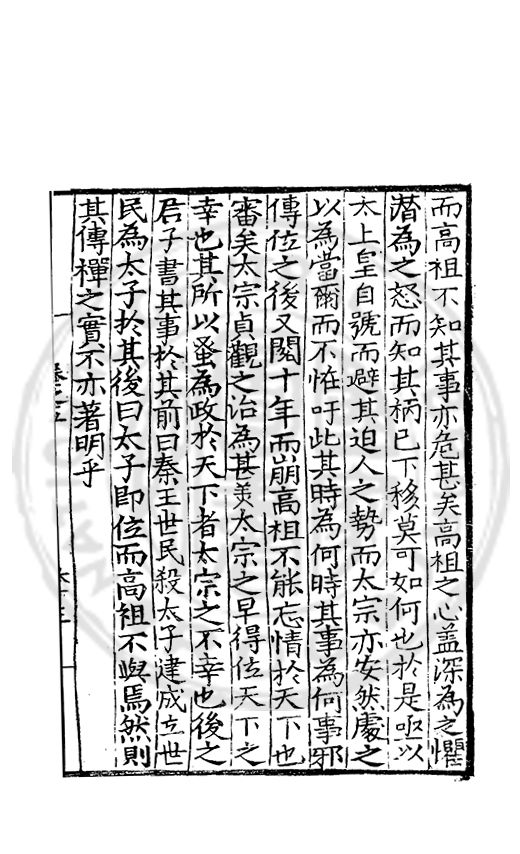 而高祖不知其事亦危甚矣高祖之心蓋深為之懼
潜為之怒而知其柄已下移莫可如何也於是亟以
太上皇自號而避其迫人之勢而太宗亦安然處之
以為當爾而不怪吁此其時為何時其事為何事邪
傳位之後又閱十年而崩高祖不能忘情於天下也
審矣太宗貞觀之治為甚美太宗之早得位天下之
幸也其所以蚤為政於天下者太宗之不幸也後之
君子書其事於其前曰秦王世民殺太子建成立世
民為太子於其後曰太子即位而高祖不與焉然則
其傳禪之實不亦著明乎
卷之五